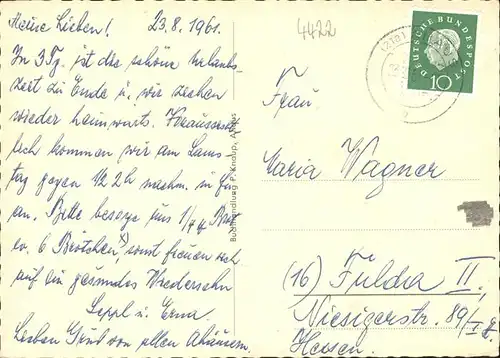 Meine Lieben! 23.8.1961.
In 3 Tg. ist die schöne Urlaubs-
zeit zu Ende u. wir ziehen
wieder heimwärts. Voraussicht-
lich kommen wir am Sams-
tag gegen 12 2h nachm. in
an. Bitte besorge uns 1/ Brot
ev. 6 Brötchen, sonst freuen wir
auf ein gesundes Wiedersehn
Seppl u. Erna.
Lieben Gruß von allen
Buchhandlung P. Knaup,
4422
DEUTSCHE BUNDESPOST
10
Frau
Maria Wagner
(16) Fulda II,
Niesigerstr. 89/I
Hessen.